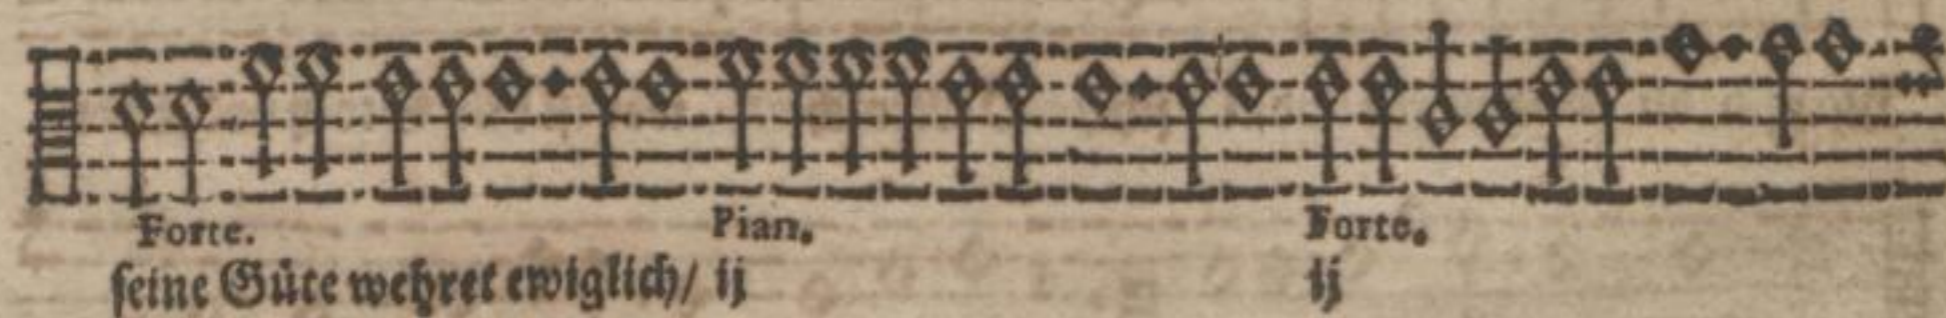 Forte. Pian. Forte.
seine Güte wehret ewiglich/ ij ij